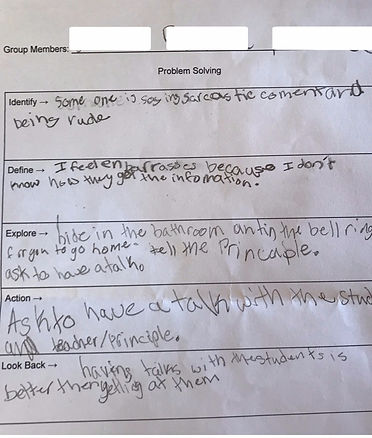 Group Members:
Problem Solving
Identify → Some one is sasing sarcastic coment and
being rude
Define → I feel enbarrasses because I don't
know how they got the infomation.
Explore → hide in the bathroom antin the bell ring
for you to go home - tell the Princaple.
ask to have a talk.
Action → 
Ask to have a talk with the stud
and teacher/principle.
Look Back → having talks with the students is
better then yelling at them